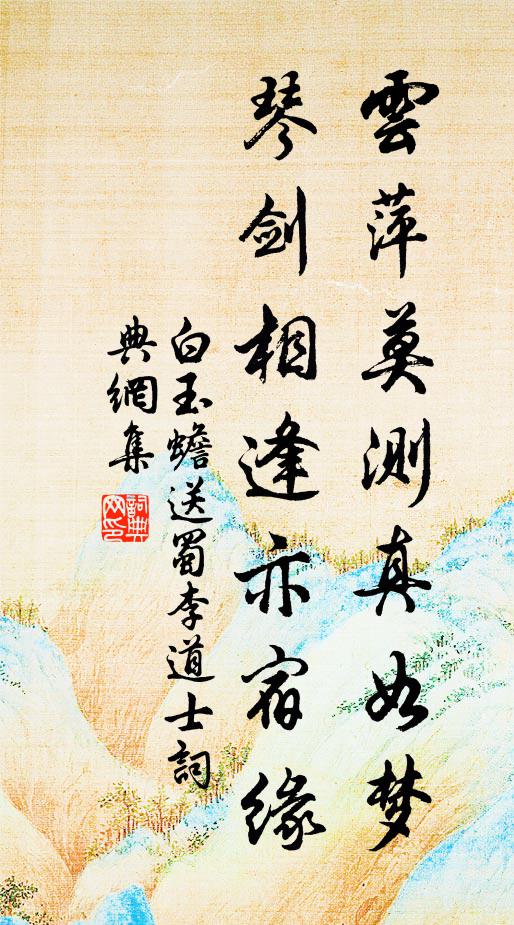 雲萍莫測真如梦
琴剑相逢亦宿緣
白玉蟾送蜀李道士詞
典網集
詞典
网印